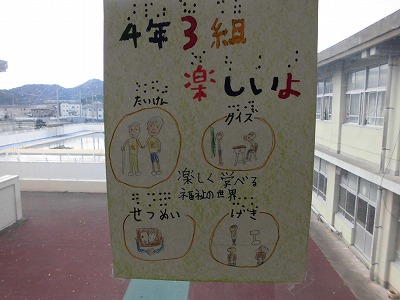 4年3組
楽しいよ
たいけん
クイズ
楽しく学べる
福祉の世界
せつめい
げき